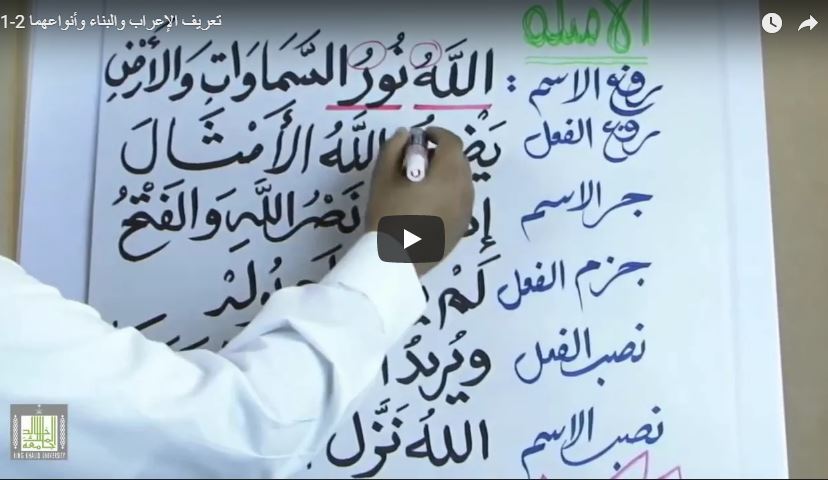 تعريف الإعراب والبناء وأنواعهما 2-1
الأمثلة
رفع الاسم : اللَّهُ نُورُ السَّمَاوَاتِ وَالأَرْضِ
رفع الفعل اللَّهُ الأَمْثَالَ
جر الاسم نَصْرُ اللَّهِ وَالفَتْحُ
جزم الفعل لَمْ
نصب الفعل ويُرِيدُ
نصب الاسم اللهُ نَزَّلَ
KING KHALID UNIVERSITY